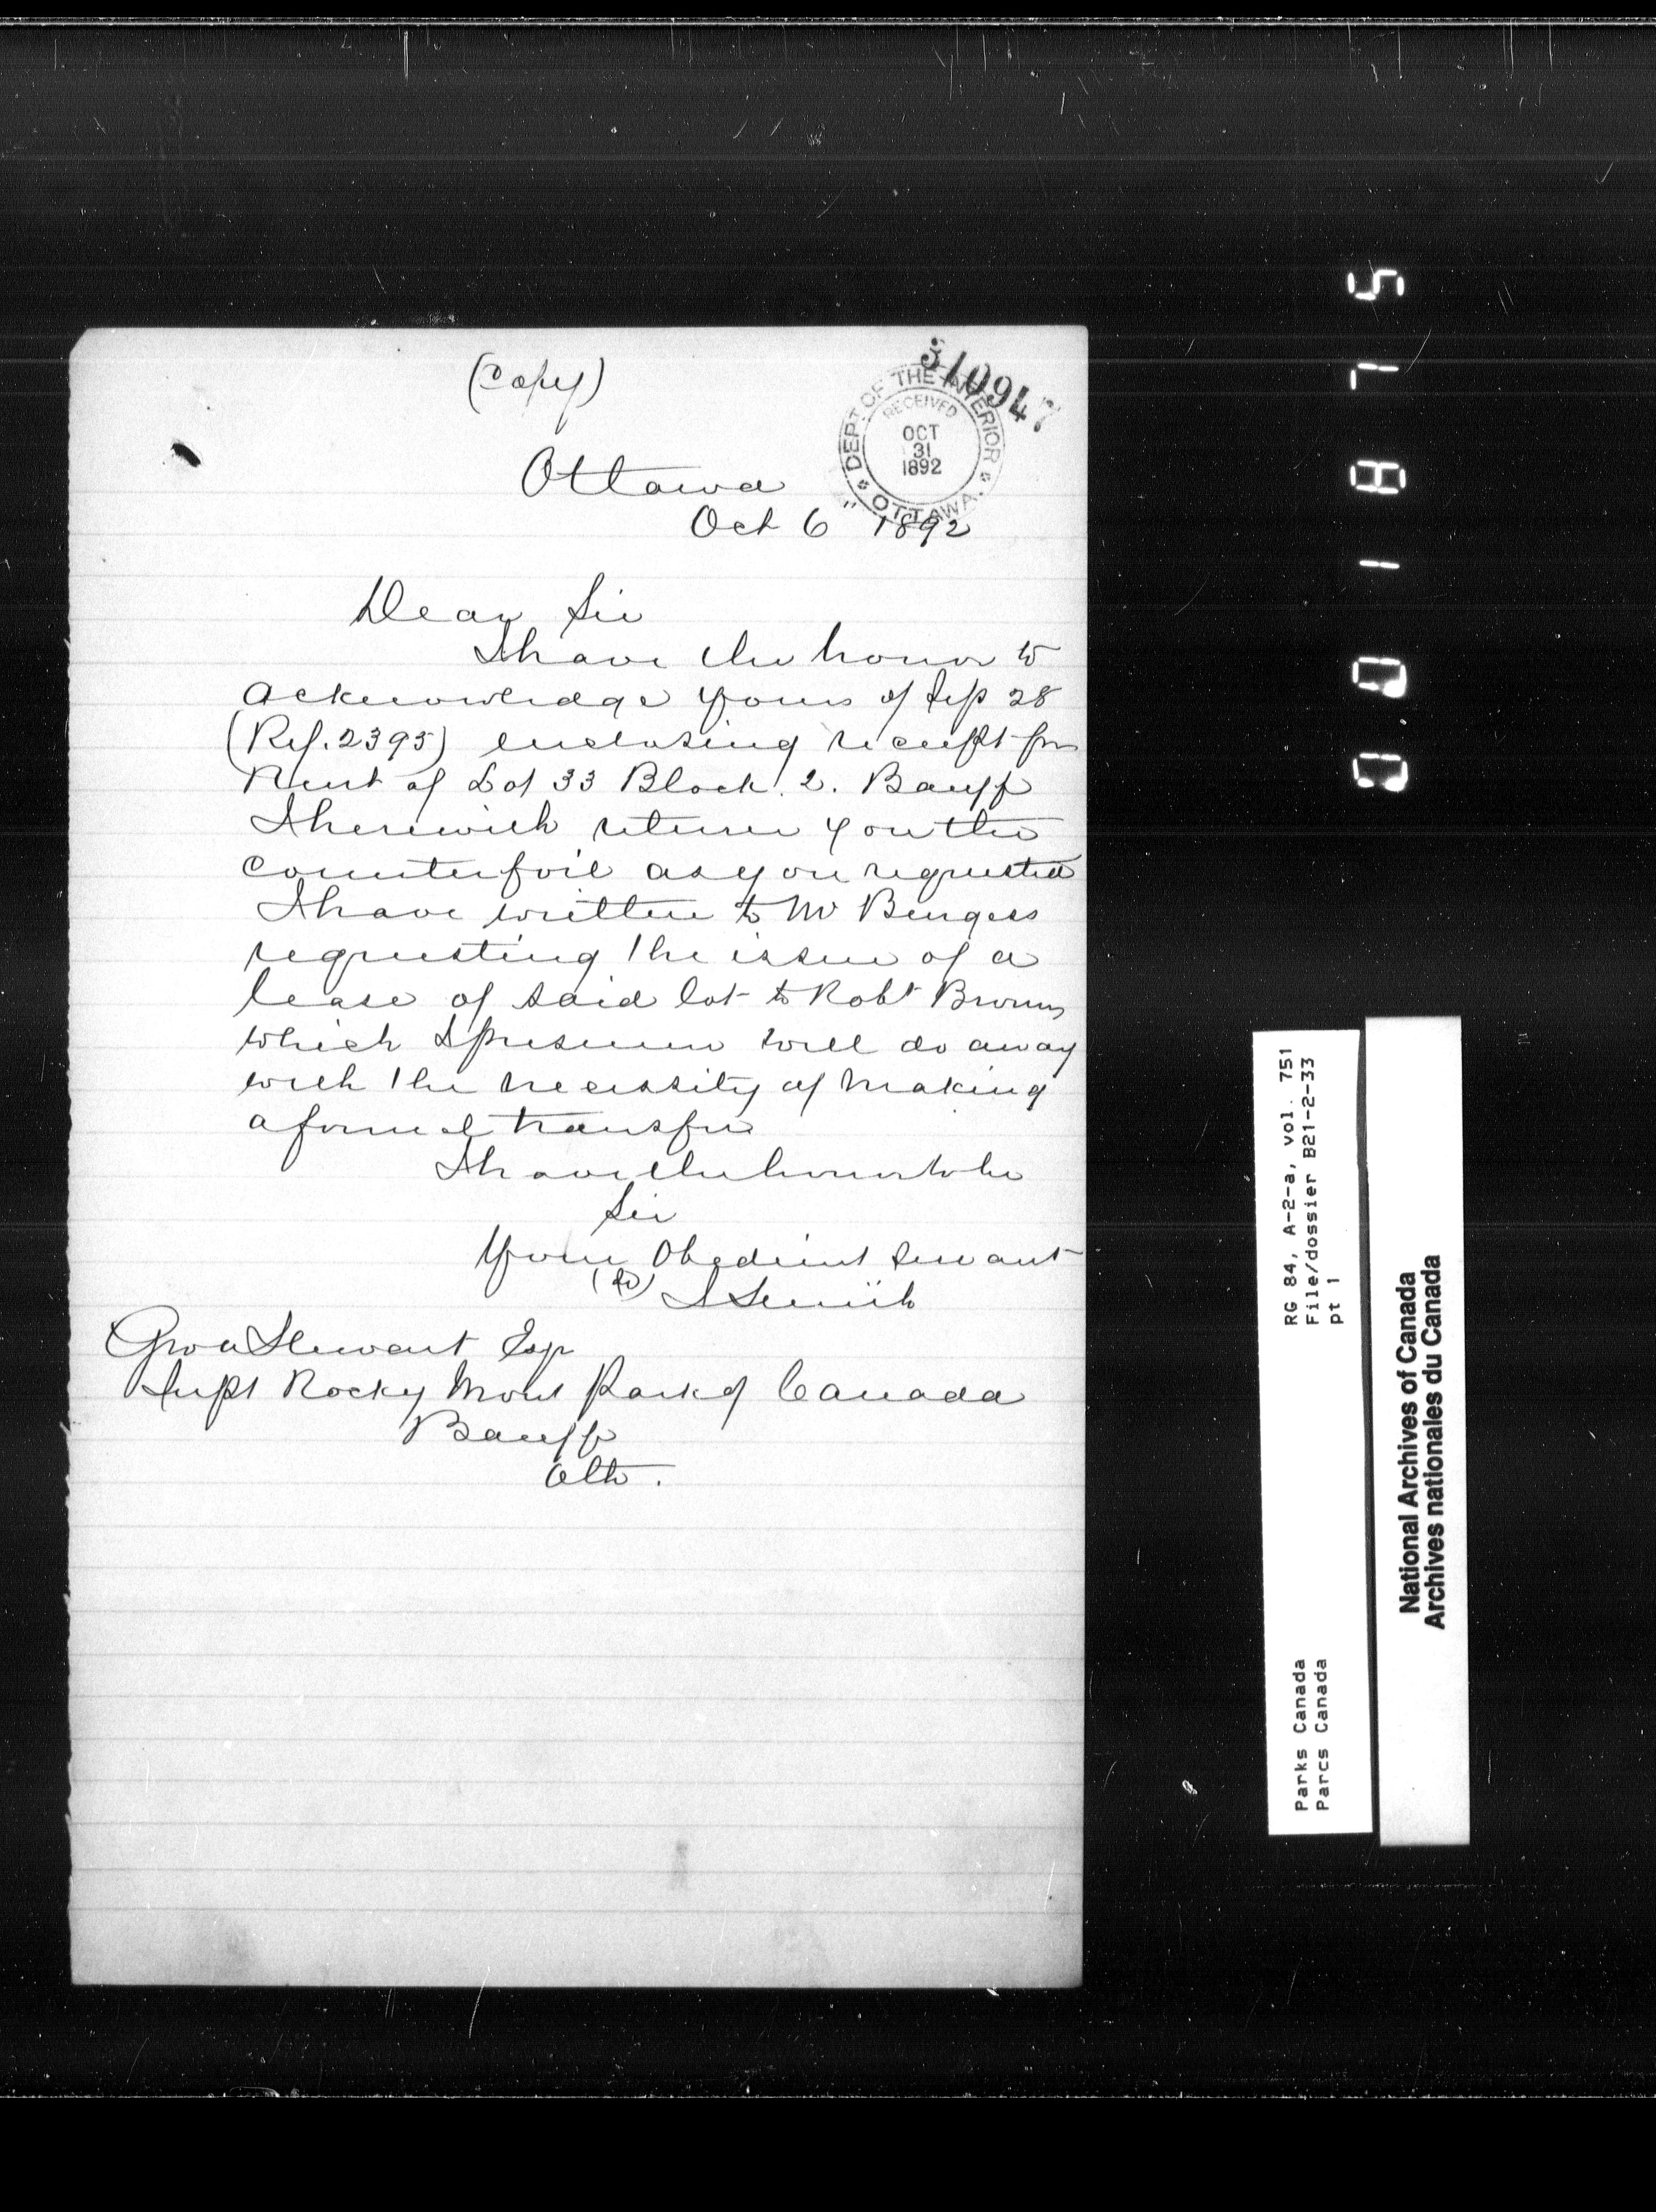 (Copy)
310947
DEPT OF THE INTERIOR
RECEIVED
OCT
31
1892
OTTAWA
Ottawa
Oct 6 " 1892
Dear Sir
I have the honor to
acknowledge yours of Sep 28
(Ref. 2395) enclosing receipt for
Rent of Lot 33 Block 2. Banff
I herewith return you the
counterfoil as you requested
I have written to Mr Burgess
requesting the issue of a
lease of said lot to Robt Brown
which I presume will do away
with the necessity of making
a formal transfer
I have the honor to be
Sir
Your Obedient Servant
(Sd) S Smith
Geo A Stewart Esq
Supt Rocky Mont Park of Canada
Banff
Alta.
001875
RG 84, A-2-a, vol. 751
File/dossier B21-2-33
pt 1
Parks Canada
Parcs Canada
National Archives of Canada
Archives nationales du Canada